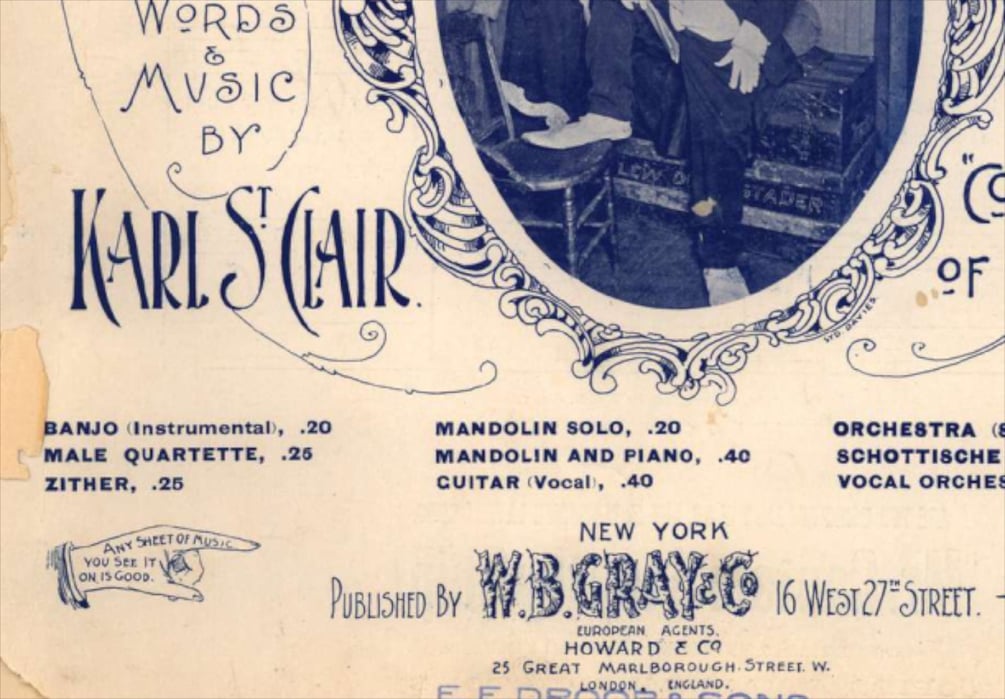 WORDS
&
MUSIC
BY
KARL ST CLAIR.
"CO
OF
LEW D STADER
SYD. DAVIES
BANJO (Instrumental), .20
MALE QUARTETTE, .25
ZITHER, .25
MANDOLIN SOLO, .20
MANDOLIN AND PIANO, .40
GUITAR (Vocal), .40
ORCHESTRA (8
SCHOTTISCHE
VOCAL ORCHES
ANY SHEET OF MUSIC
YOU SEE IT
ON IS GOOD.
NEW YORK
PUBLISHED BY W. B. GRAY & CO 16 WEST 27TH STREET.
EUROPEAN AGENTS,
HOWARD & CO
25 GREAT MARLBOROUGH STREET. W.
LONDON, ENGLAND.